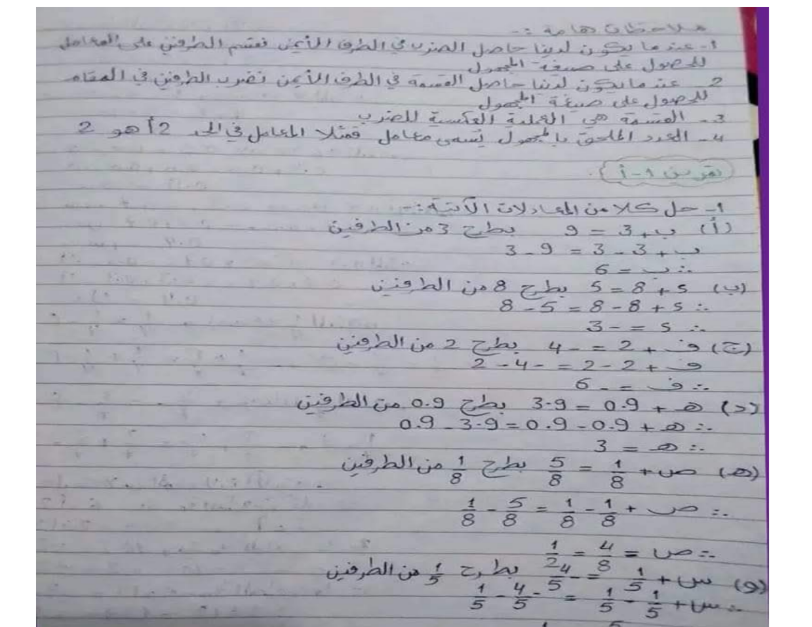 ملاحظات هامة :-
1- عندما يكون لدينا حاصل الضرب في الطرف الأيمن نقسم الطرفين على المعامل
للحصول على صيغة المجهول
2- عندما يكون لدينا حاصل القسمة في الطرف الأيمن نضرب الطرفين في المقام
للحصول على صيغة المجهول
3- القسمة هي العملية العكسية للضرب
4- العدد الملحق بالمجهول يسمى معامل فمثلا المعامل في الحد 2أ هو 2
تمرين 1-أ
1- حل كلا من المعادلات الآتية :-
(أ) ب + 3 = 9 بطرح 3 من الطرفين
ب + 3 - 3 = 9 - 3
∴ ب = 6
(ب) s + 8 = 5 بطرح 8 من الطرفين
∴ s + 8 - 8 = 5 - 8
∴ s = -3
(ج) ف + 2 = -4 بطرح 2 من الطرفين
ف + 2 - 2 = -4 - 2
∴ ف = -6
(د) هـ + 0.9 = 3.9 بطرح 0.9 من الطرفين
∴ هـ + 0.9 - 0.9 = 3.9 - 0.9
∴ هـ = 3
(هـ) ص + 1/8 = 5/8 بطرح 1/8 من الطرفين
∴ ص + 1/8 - 1/8 = 5/8 - 1/8
∴ ص = 4/8 = 1/2
(و) س + 1/5 = -4/5 بطرح 1/5 من الطرفين
∴ س + 1/5 - 1/5 = -4/5 - 1/5